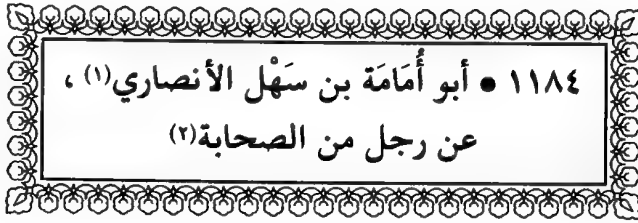 ١١٨٤ • أبو أُمَامَة بن سَهْل الأنصاري(١) ،
عن رجل من الصحابة(٢)